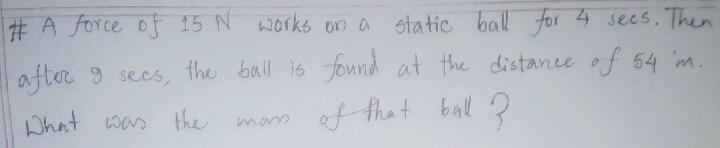 # A force of 15 N works on a static ball for 4 secs. Then
after 9 secs, the ball is found at the distance of 54 m.
What was the mass of that ball?